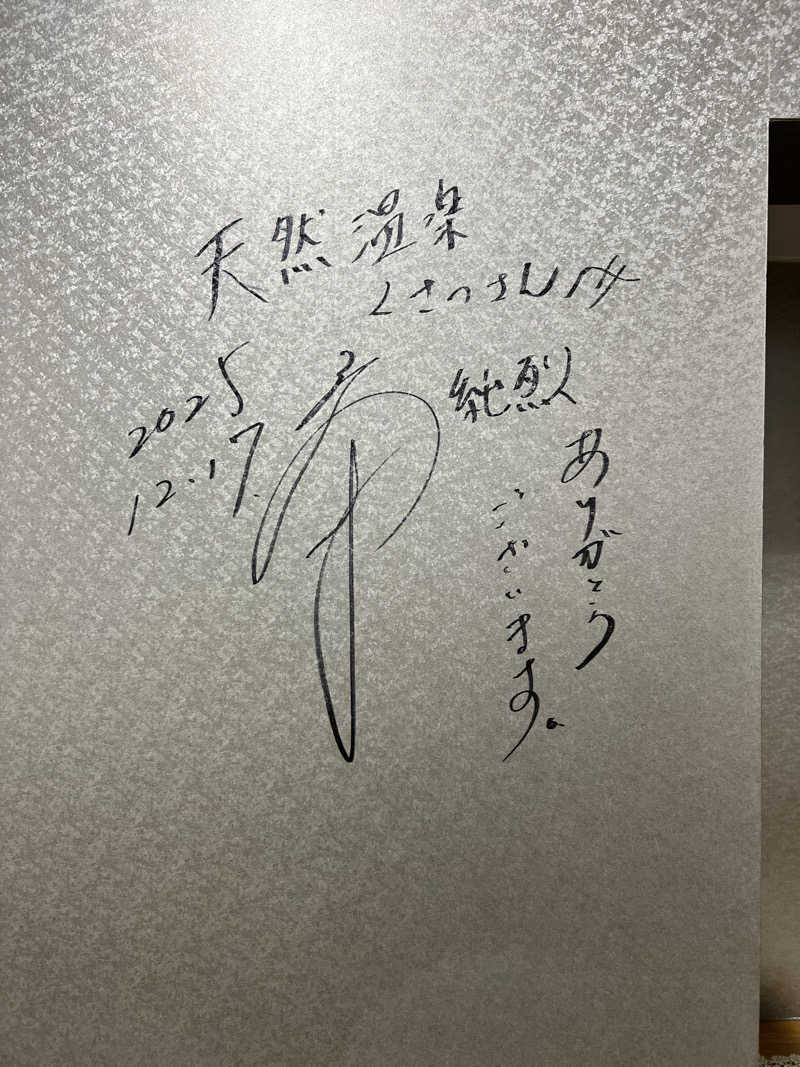 天然温泉
くさつさん江
純烈
ありがとう
ございます。
2025
12.17.